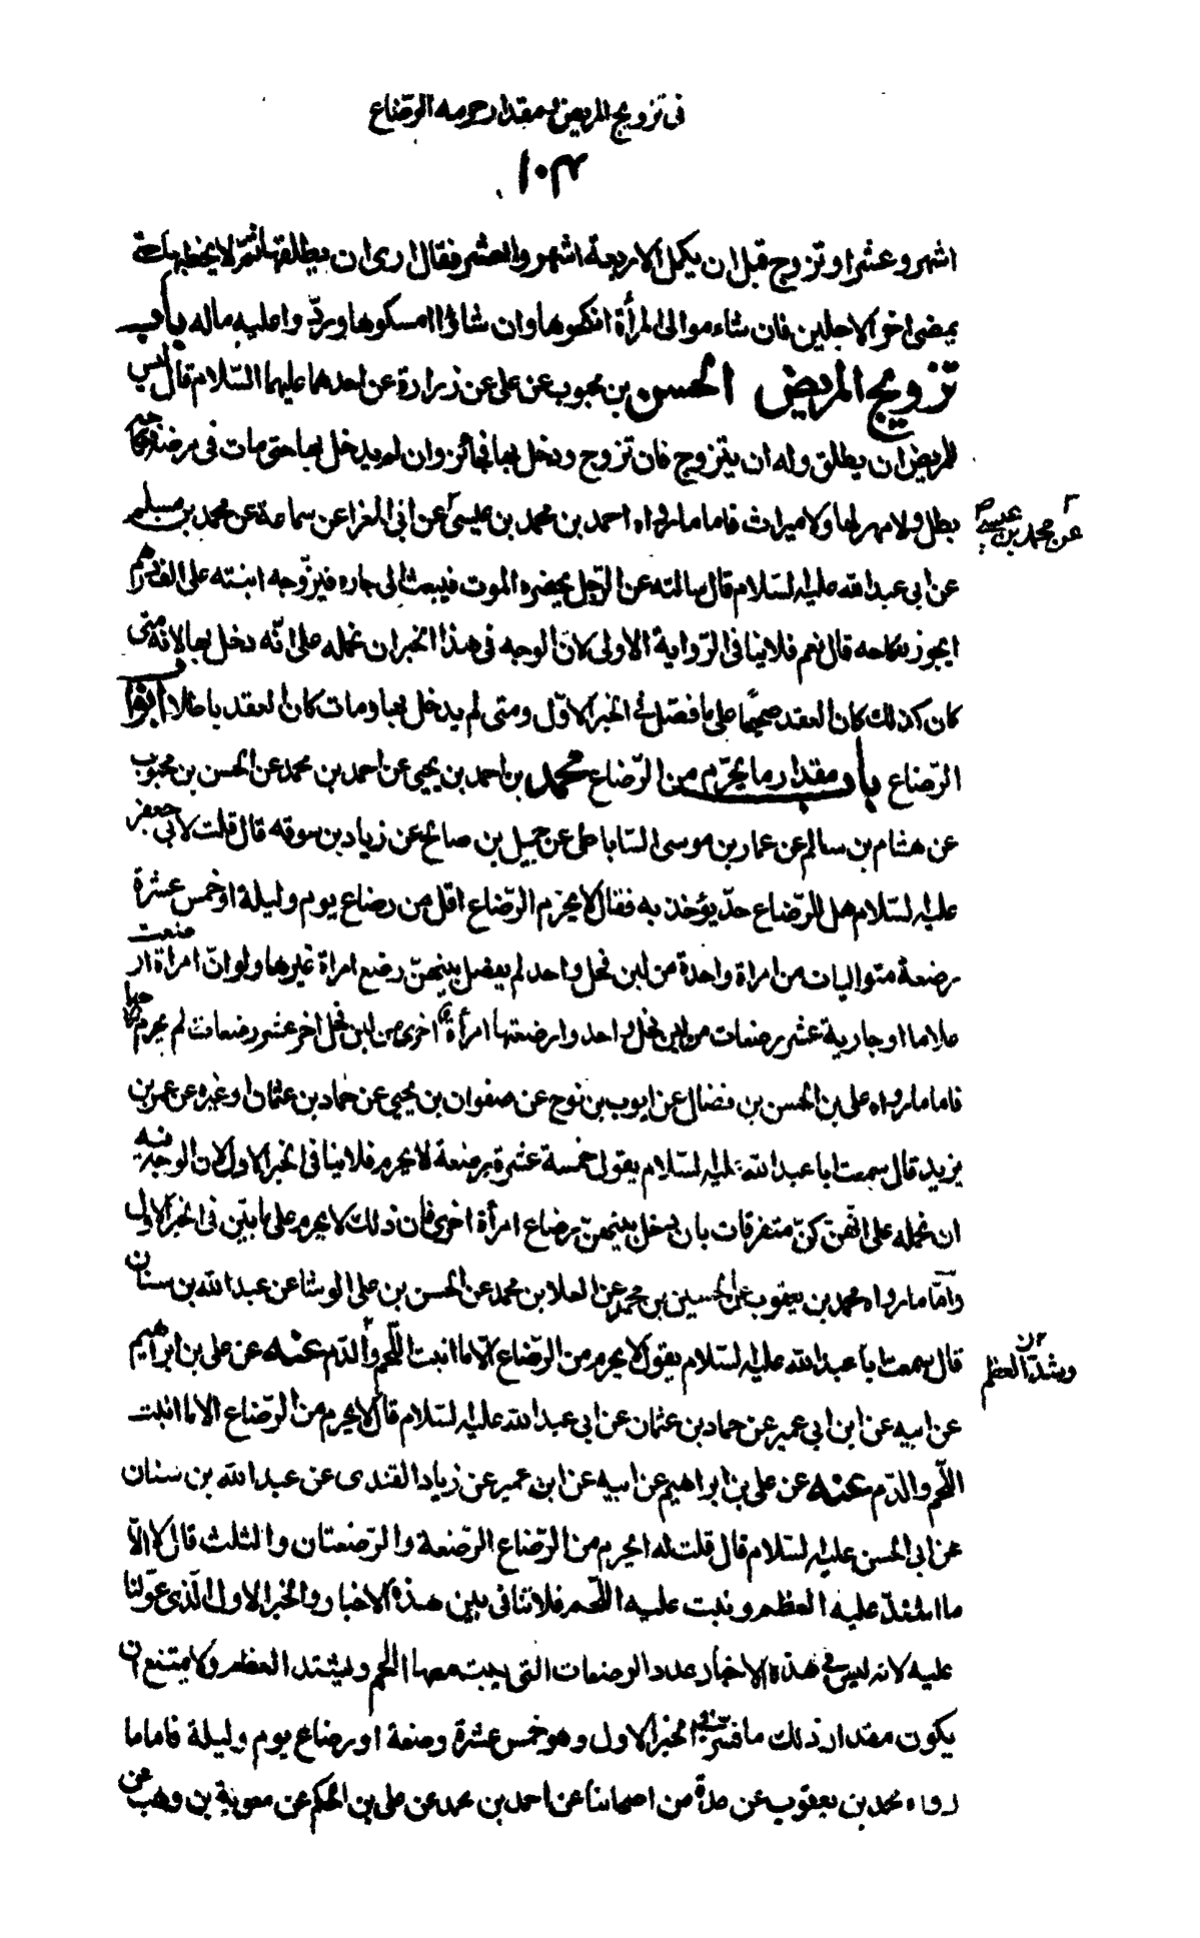 فى تزويج المريض بمقدار حرمه الرّضاع
١٠٣
اشهر وعشرا وتزوج قبل ان يكمل الاربعة اشهر والعشر فقال ارى ان يطلقها ثمّ لا يخطبها حتى
يمضى اخر الاجلين فان شاء موالى المرأة انكحوها وان شاؤا امسكوها وردّوا عليه ماله باب
تزويج المريض الحسن بن محبوب عن على عن زرارة عن احدهما عليهما السّلام قال ليس
للمريض ان يطلق وله ان يتزوج فان تزوج ودخل بها فجائز وان لم يدخل بها حتى مات فى مرضه فنكاحه
بطل ولا مهر لها ولا ميراث فاما ما رواه احمد بن محمد بن عيسى عن ابى المغرا عن سماعة عن محمد بن مسلم
عن محمد بن عيسى
عن ابى عبد الله عليه السّلام قال سالته عن الرّجل يحضره الموت فيبعث الى جاره فيزوّجه ابنته على الف درهم
ايجوز نكاحه قال نعم فلا ينافى الرّواية الاولى لانّ الوجه فى هذا الخبر ان نحمله على انّه دخل بها لانه متى
كان كذلك كان العقد صحيحا على ما فصّل فى الخبر الاوّل ومتى لم يدخل بها ومات كان العقد باطلا ابواب
الرّضاع باب مقدار ما يحرّم من الرّضاع محمد بن احمد بن يحيى عن احمد بن محمد عن الحسن بن محبوب
عن هشام بن سالم عن عمار بن موسى السّاباطى عن جميل بن صالح عن زياد بن سوقه قال قلت لابى جعفر
عليه السّلام هل للرّضاع حدّ يؤخذ به فقال لا يحرم الرّضاع اقل من رضاع يوم وليلة او خمس عشرة
رضعة متواليات من امراة واحدة من لبن فحل واحد لم يفصل بينهنّ رضع امراة غيرها ولو انّ امراة ارضعت
غلاما او جارية عشر رضعات من لبن فحل واحد وارضعتها امرأة اخرى من لبن فحل اخر عشر رضعات لم يحرم نكاحها
فاما ما رواه على بن الحسن بن فضال عن ايوب بن نوح عن صفوان بن يحيى عن حماد بن عثمان او غيره عن عمر بن
يزيد قال سمعت ابا عبد الله عليه السّلام يقول خمسة عشرة رضعة لا يحرم فلا ينافى الخبر الاول لان الوجه فيه
ان نحمله على انّهنّ كنّ متفرقات بان دخل بينهنّ رضاع امرأة اخرى فان ذلك لا يحرم على ما بيّن فى الخبر الاول
وامّا ما رواه محمد بن يعقوب عن الحسين بن محمد عن المعلا بن محمد عن الحسن بن على الوشا عن عبد الله بن سنان
قال سمعت ابا عبد الله عليه السّلام يقول لا يحرم من الرّضاع الّا ما انبت اللّحم والدّم عنه عن على بن ابراهيم
وشدّ العظم
عن ابيه عن ابن ابى عمير عن حماد بن عثمان عن ابى عبد الله عليه السّلام قال لا يحرم من الرّضاع الا ما انبت
اللّحم والدّم عنه عن على بن ابراهيم عن ابيه عن ابن عمير عن زياد القندى عن عبد الله بن سنان
عن ابى الحسن عليه السّلام قال قلت له يحرم من الرّضاع الرّضعة والرّضعتان والثلث قال لا الّا
ما اشتدّ عليه العظم ونبت عليه اللّحم فلا تنافى بين هذه الاخبار والخبر الاول الّذى عوّلنا
عليه لانه ليس فى هذه الاخبار عدد الرضعات التى ينبت معها اللحم ويشتد العظم ولا يمتنع ان
يكون مقدار ذلك ما فسّر فى الخبر الاول وهو خمس عشرة رضعة او رضاع يوم وليلة فاما ما
رواه محمد بن يعقوب عن عدة من اصحابنا عن احمد بن محمد عن على بن الحكم عن معوية بن وهب عن